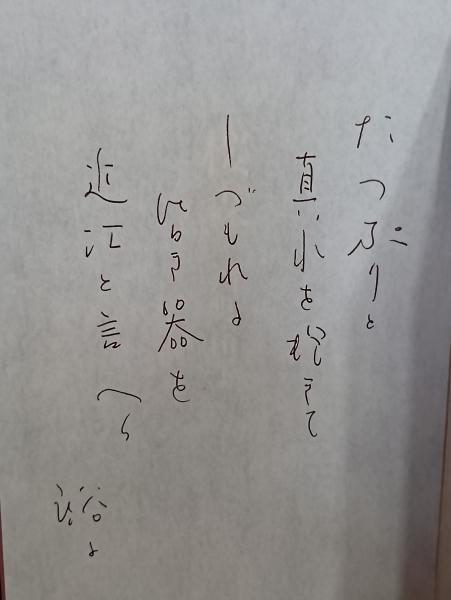 たつぷりと
真水を抱きて
しづもれる
昏き器を
近江と言へり
裕子